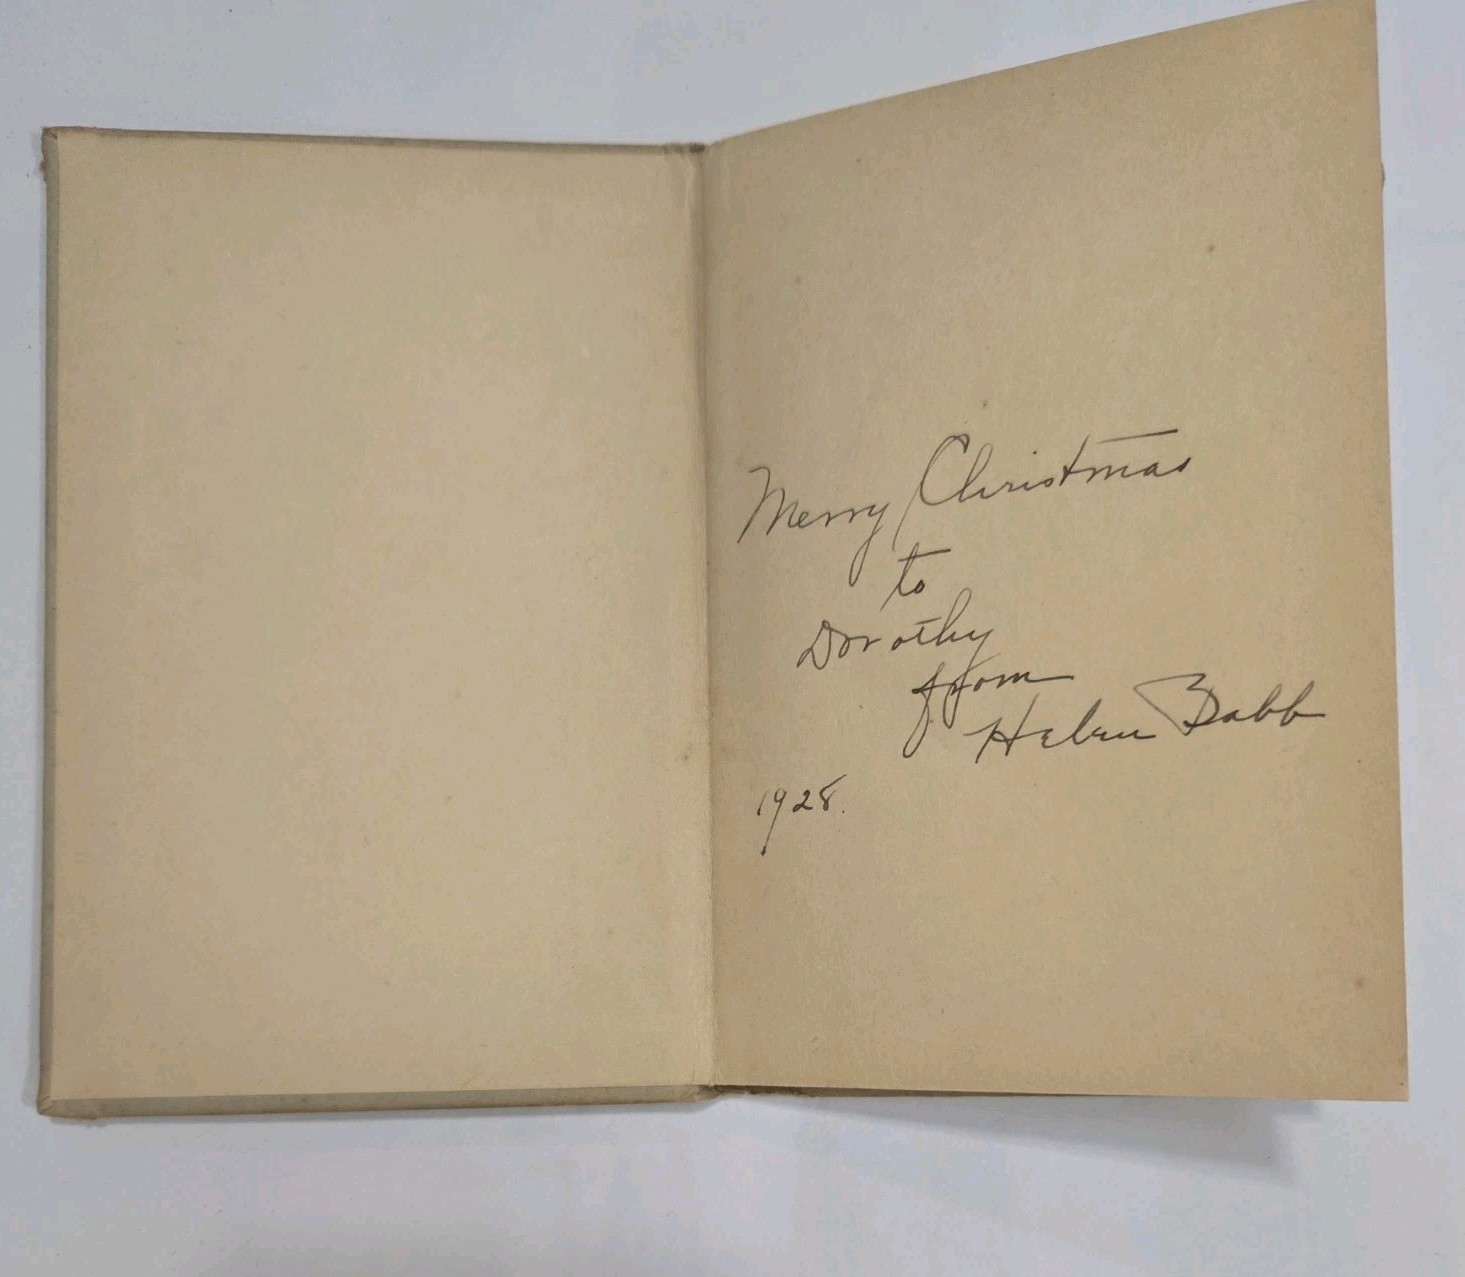 Merry Christmas
to
Dorothy
from
Helen Babb
1928.